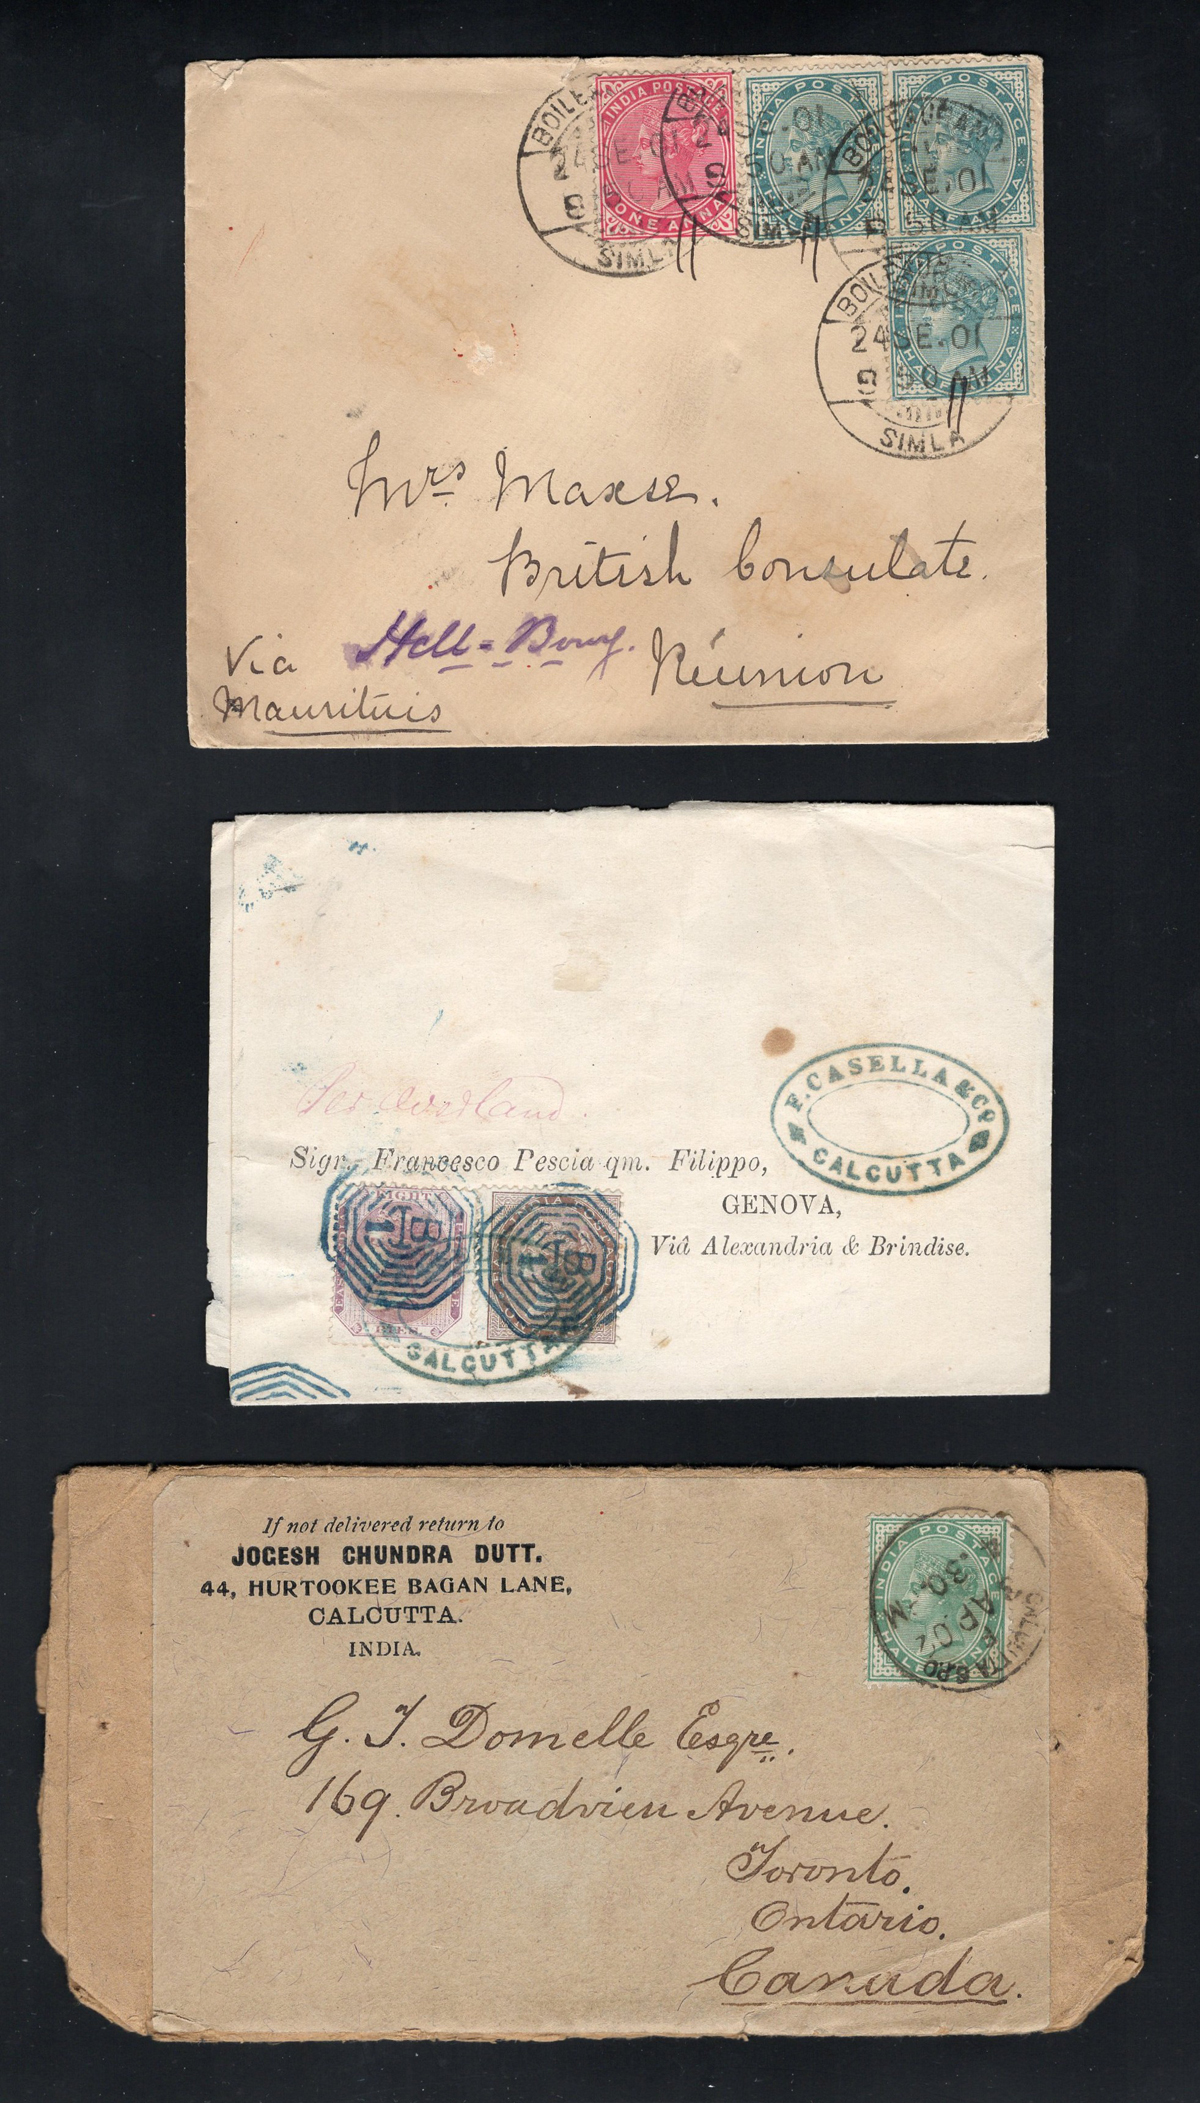 INDIA POSTAGE
ONE ANNA
INDIA POSTAGE
HALF ANNA
INDIA POSTAGE
HALF ANNA
INDIA POSTAGE
HALF ANNA
24 SE.01
SIMLA
SIMLA
24 SE.01
SIMLA
Mrs Maxse.
British Consulate.
Hell-Bourg. Réunion
Via
Mauritius
Per Overland.
F. CASELLA & Co
CALCUTTA
Sigr. Francesco Pescia qm. Filippo,
GENOVA,
Viâ Alexandria & Brindise.
B
1
B
1
CALCUTTA
If not delivered return to
JOGESH CHUNDRA DUTT.
44, HURTOOKEE BAGAN LANE,
CALCUTTA.
INDIA.
INDIA POSTAGE
HALF ANNA
CALCUTTA G.P.O.
AP. 02
G. T. Domelle Esqre.
169. Broadview Avenue.
Toronto.
Ontario.
Canada.